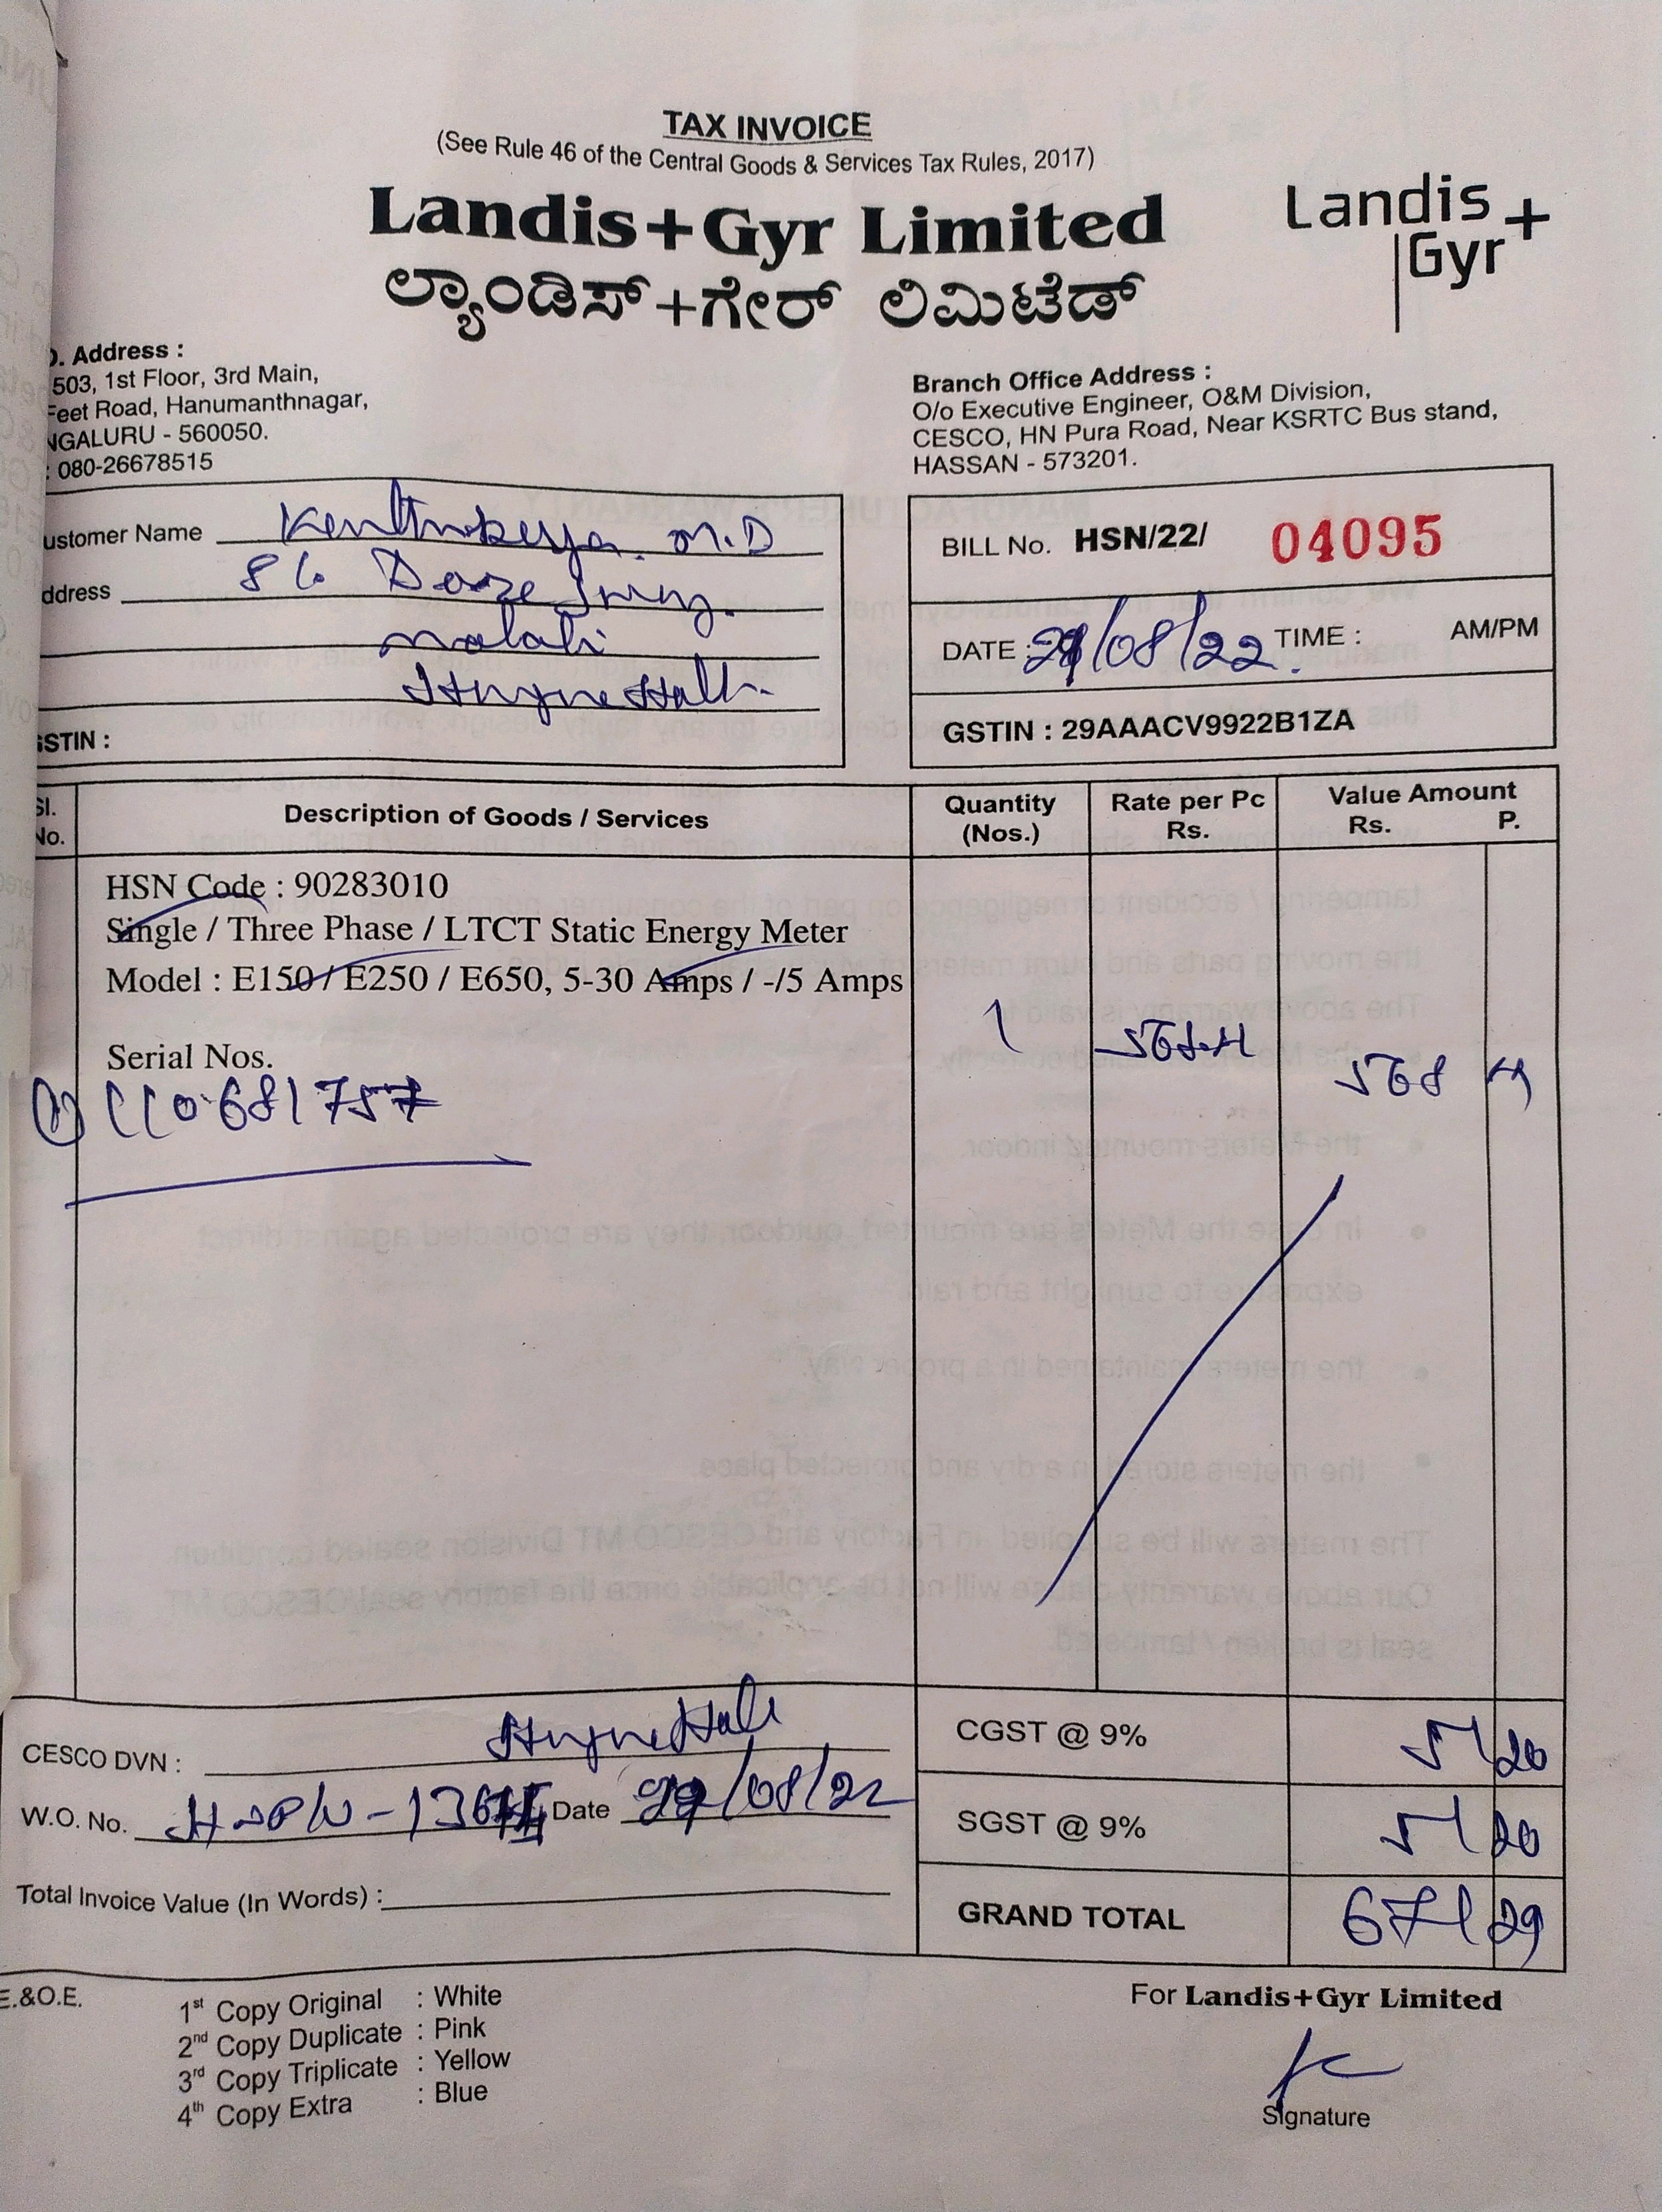 TAX INVOICE
(See Rule 46 of the Central Goods & Services Tax Rules, 2017)
Landis+Gyr Limited
Landis+
Gyr
ಲ್ಯಾಂಡಿಸ್+ಗೇರ್ ಲಿಮಿಟೆಡ್
. Address :
503, 1st Floor, 3rd Main,
Feet Road, Hanumanthnagar,
NGALURU - 560050.
: 080-26678515
Branch Office Address :
O/o Executive Engineer, O&M Division,
CESCO, HN Pura Road, Near KSRTC Bus stand,
HASSAN - 573201.
ustomer Name M.D
ddress
GSTIN :
BILL No. HSN/22/ 04095
DATE : /08/22 TIME : AM/PM
GSTIN : 29AAACV9922B1ZA
Sl. No. Description of Goods / Services Quantity (Nos.) Rate per Pc Rs. Value Amount Rs. P.
HSN Code : 90283010
Single / Three Phase / LTCT Static Energy Meter
Model : E150 / E250 / E650, 5-30 Amps / -/5 Amps
1 568
Serial Nos.
1) 110681757
CESCO DVN :
W.O. No. Date /08/22
Total Invoice Value (In Words) :
CGST @ 9% 51 20
SGST @ 9% 51 20
GRAND TOTAL 671 29
E.&O.E.
1st Copy Original : White
2nd Copy Duplicate : Pink
3rd Copy Triplicate : Yellow
4th Copy Extra : Blue
For Landis+Gyr Limited
Signature